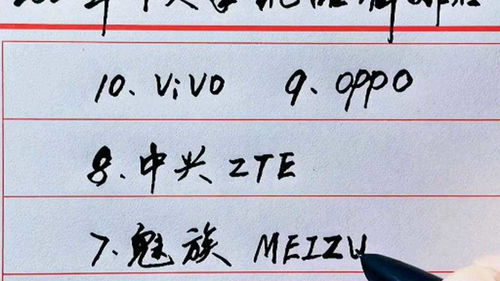 10. ViVO 9. OPPO
8. 中兴 ZTE
7. 魅族 MEIZU